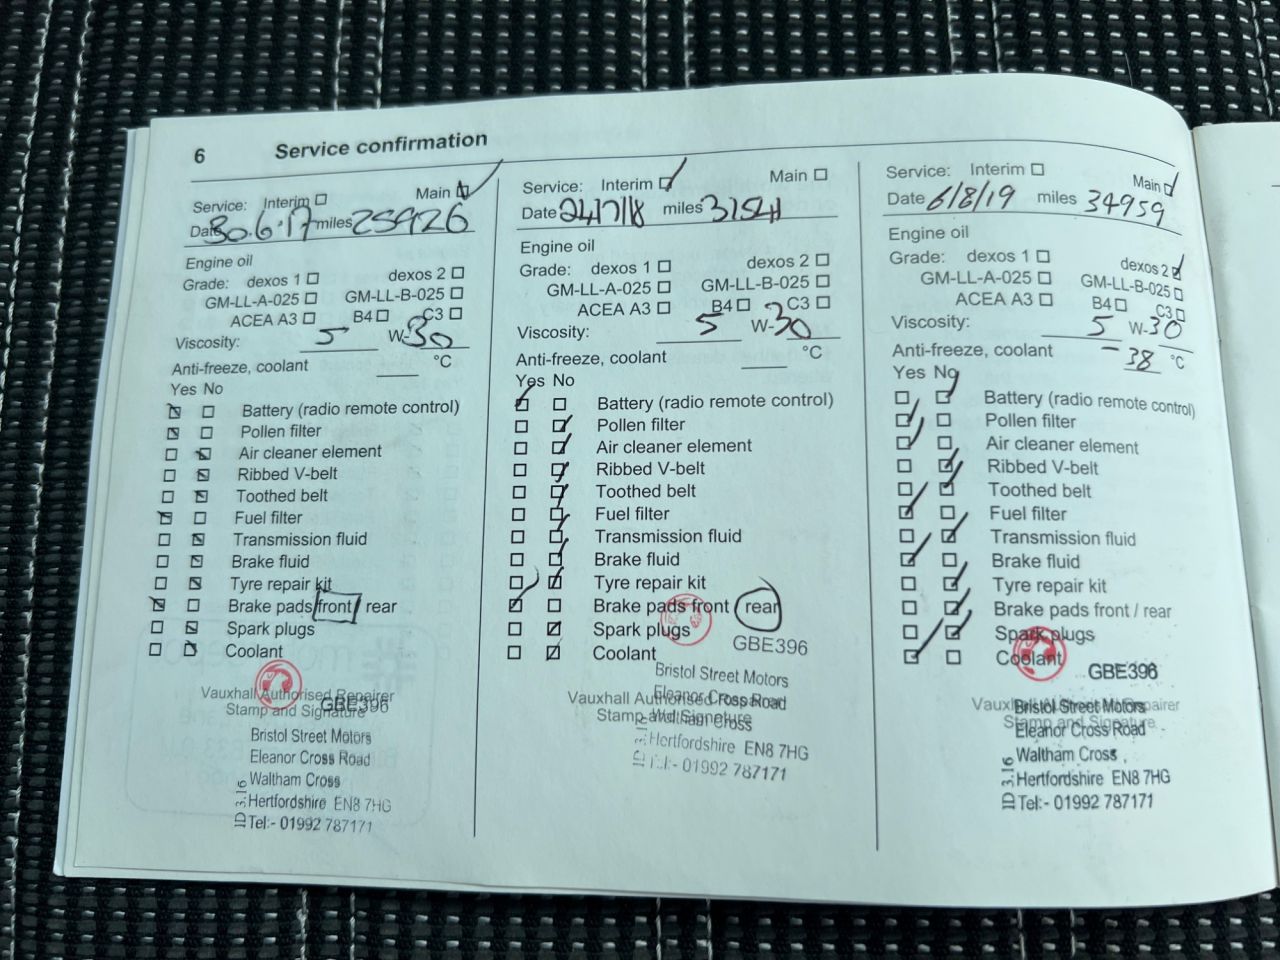 6 Service confirmation
Service: Interim Main
Date 30.6.17 miles 25926
Engine oil
Grade: dexos 1 dexos 2
GM-LL-A-025 GM-LL-B-025
ACEA A3 B4 C3
Viscosity: 5 W-30
Anti-freeze, coolant °C
Yes No
Battery (radio remote control)
Pollen filter
Air cleaner element
Ribbed V-belt
Toothed belt
Fuel filter
Transmission fluid
Brake fluid
Tyre repair kit
Brake pads front / rear
Spark plugs
Coolant
Vauxhall Authorised Repairer
Stamp and Signature
GBE396
Bristol Street Motors
Eleanor Cross Road
Waltham Cross
Hertfordshire EN8 7HG
Tel:- 01992 787171
ID 3.16
Service: Interim Main
Date 24/7/18 miles 31541
Engine oil
Grade: dexos 1 dexos 2
GM-LL-A-025 GM-LL-B-025
ACEA A3 B4 C3
Viscosity: 5 W-30
Anti-freeze, coolant °C
Yes No
Battery (radio remote control)
Pollen filter
Air cleaner element
Ribbed V-belt
Toothed belt
Fuel filter
Transmission fluid
Brake fluid
Tyre repair kit
Brake pads front rear
Spark plugs
Coolant
GBE396
Bristol Street Motors
Eleanor Cross Road
Waltham Cross
Hertfordshire EN8 7HG
Tel:- 01992 787171
Vauxhall Authorised Repairer
Stamp and Signature
Service: Interim Main
Date 6/8/19 miles 34959
Engine oil
Grade: dexos 1 dexos 2
GM-LL-A-025 GM-LL-B-025
ACEA A3 B4 C3
Viscosity: 5 W-30
Anti-freeze, coolant -38 °C
Yes No
Battery (radio remote control)
Pollen filter
Air cleaner element
Ribbed V-belt
Toothed belt
Fuel filter
Transmission fluid
Brake fluid
Tyre repair kit
Brake pads front / rear
Spark plugs
Coolant
GBE396
Vauxhall Authorised Repairer
Stamp and Signature
Bristol Street Motors
Eleanor Cross Road
Waltham Cross
Hertfordshire EN8 7HG
Tel:- 01992 787171
ID 3.16